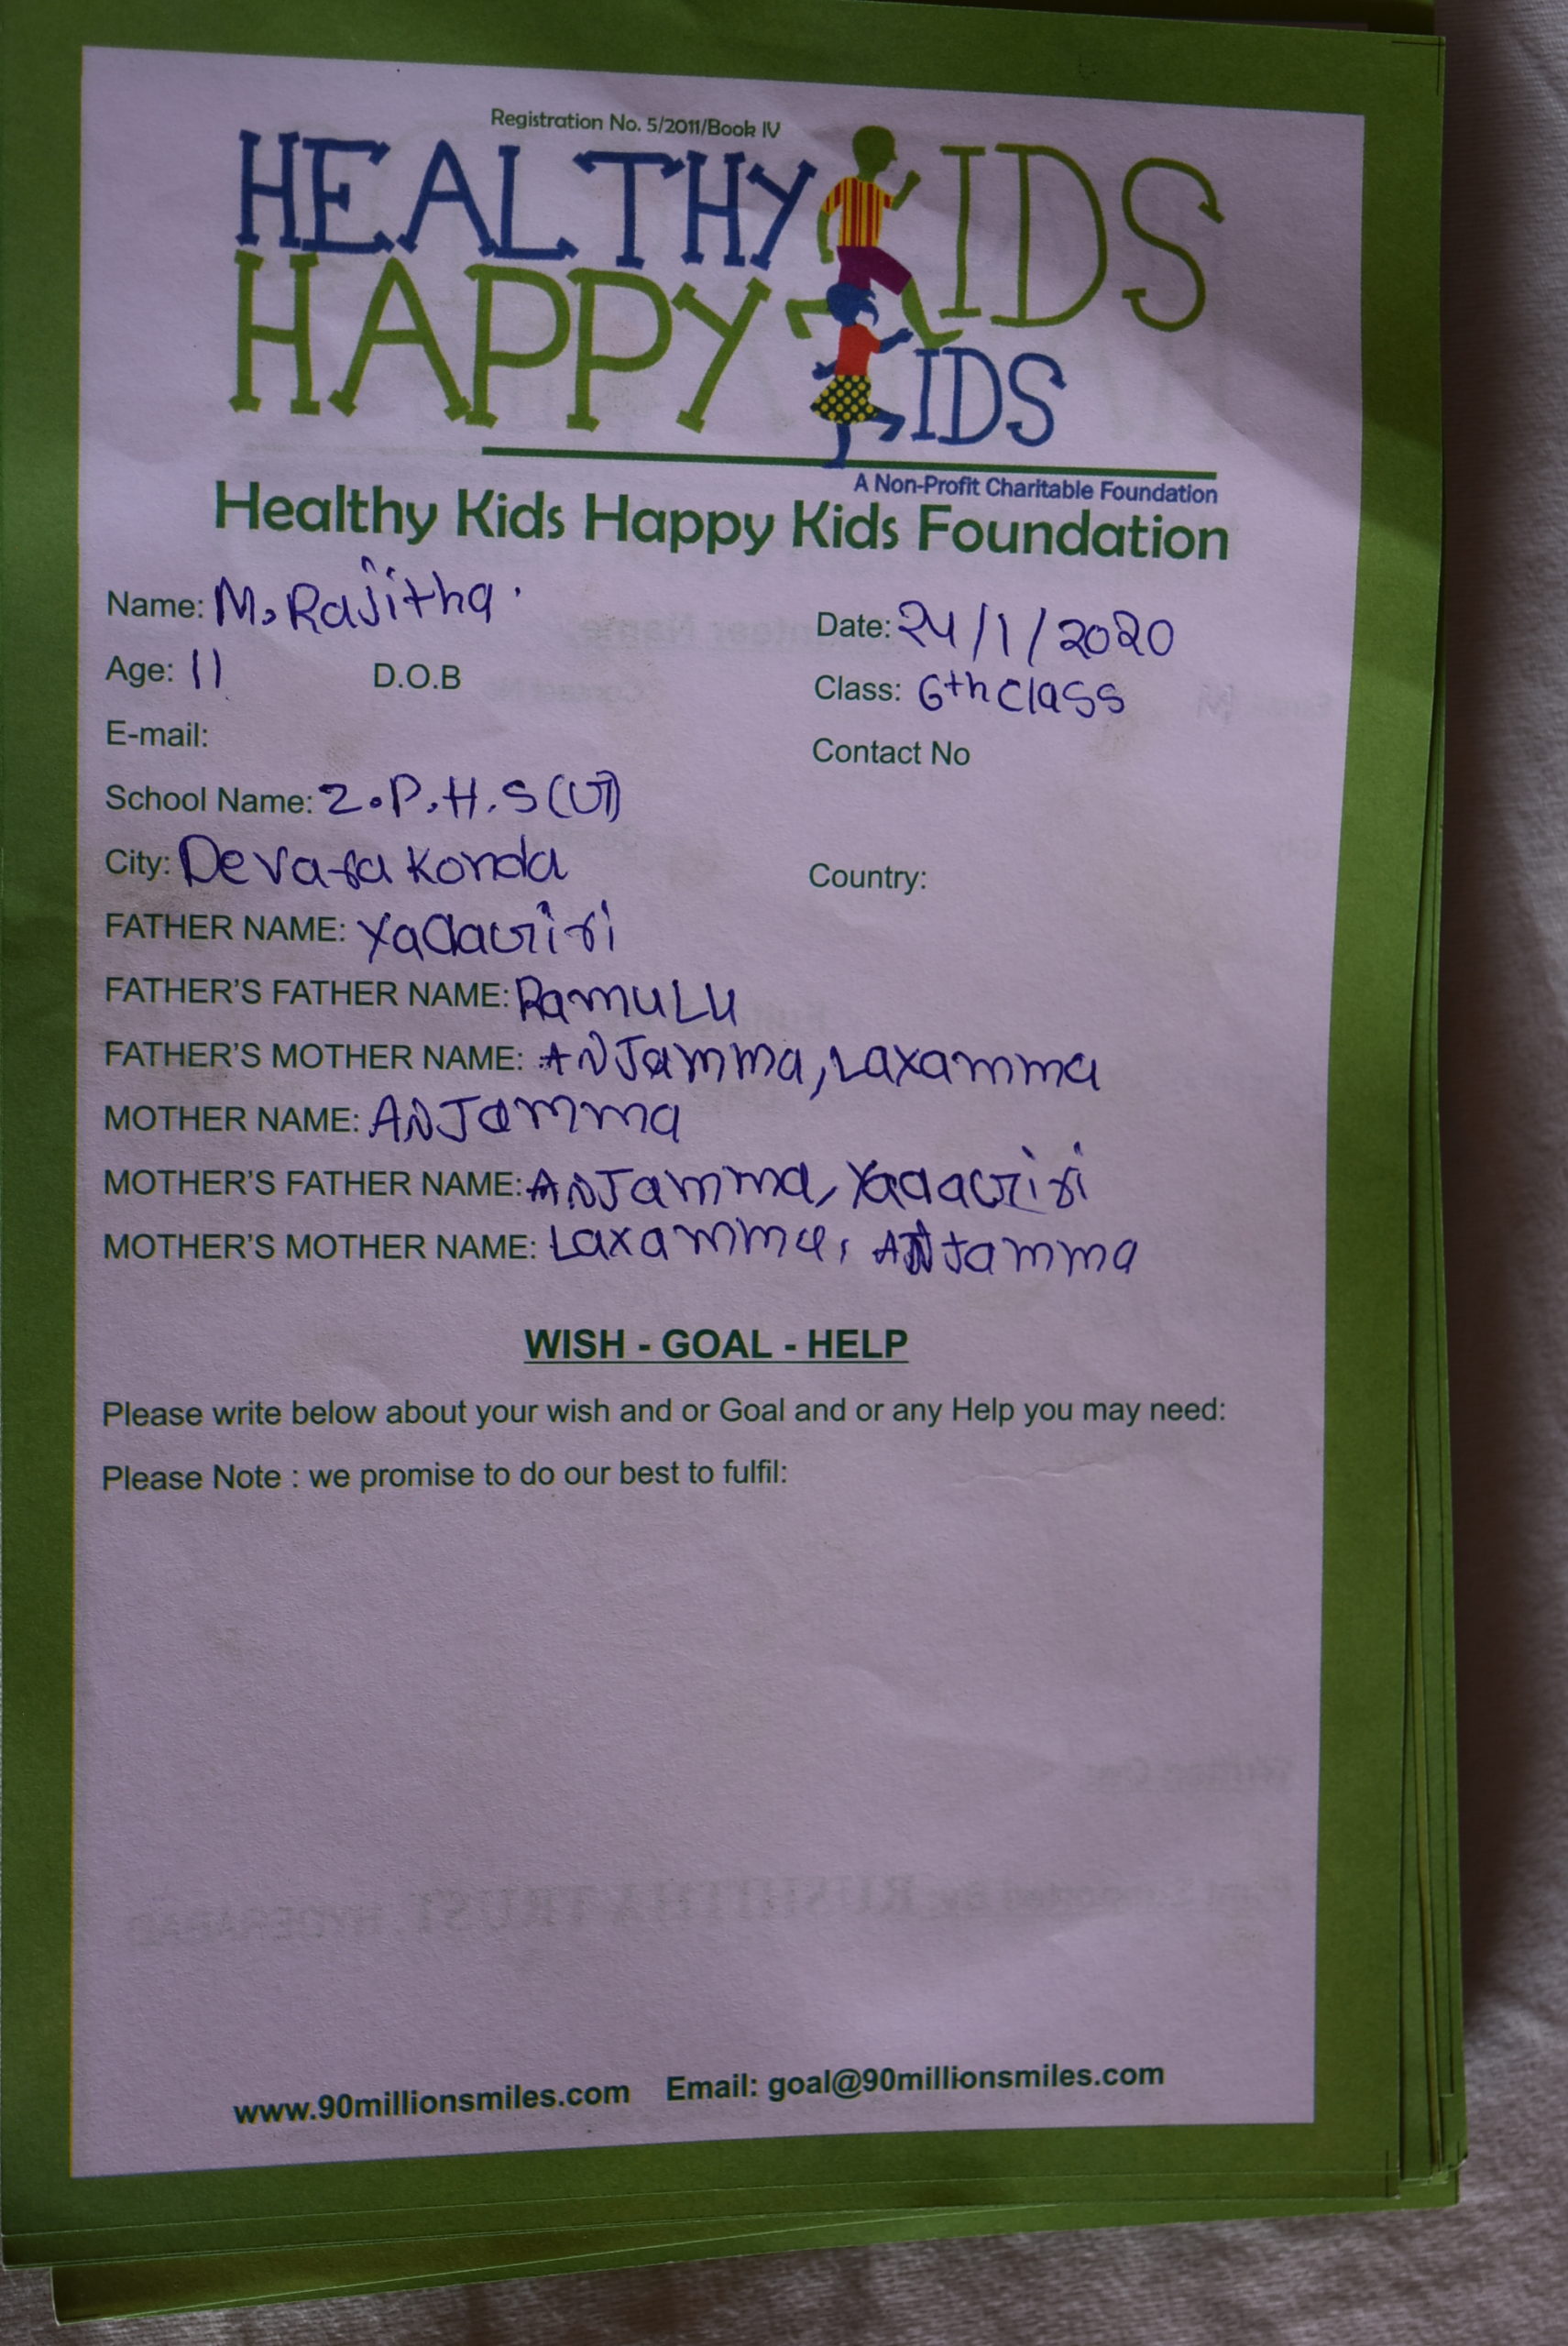 Registration No. 5/2011/Book IV
HEALTHY KIDS
HAPPY KIDS
A Non-Profit Charitable Foundation
Healthy Kids Happy Kids Foundation
Name: M. Rajitha.
Date: 24/1/2020
Age: 11 D.O.B
Class: 6th class
E-mail:
Contact No
School Name: Z.P.H.S(G)
City: Devarakonda
Country:
FATHER NAME: Yadagiri
FATHER'S FATHER NAME: RamuLu
FATHER'S MOTHER NAME: ANJamma, Laxamma
MOTHER NAME: ANJamma
MOTHER'S FATHER NAME: ANJamma, Yadagiri
MOTHER'S MOTHER NAME: Laxamma, ANJamma
WISH - GOAL - HELP
Please write below about your wish and or Goal and or any Help you may need:
Please Note : we promise to do our best to fulfil:
www.90millionsmiles.com Email: goal@90millionsmiles.com